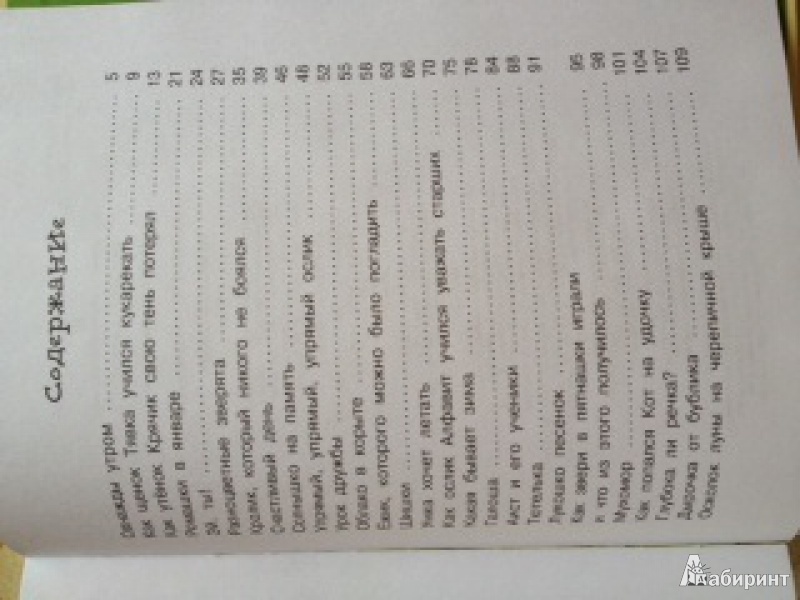 Содержание
Однажды утром 5
Как щенок Тявка учился кукарекать 9
Как утёнок Крячик свою тень потерял 13
Ромашки в январе 21
Эй, ты! 24
Разноцветные зверята 27
Кролик, который никого не боялся 35
Счастливый день 39
Солнышко на память 46
Упрямый, упрямый, упрямый ослик 48
Урок дружбы 52
Облако в корыте 55
Ёжик, которого можно было погладить 58
Шишки 63
хочет летать 66
Как ослик Алфавит учился уважать старших 70
Какая бывает зима 75
Галоша 78
Аист и его ученики 84
88
Лукошко песенок 91
Как звери в пятнашки играли
и что из этого получилось 95
Мухомор 98
Как попался Кот на удочку 101
Глубока ли речка? 104
Дырочка от бублика 107
Осколок луны на черепичной крыше 109
Лабиринт